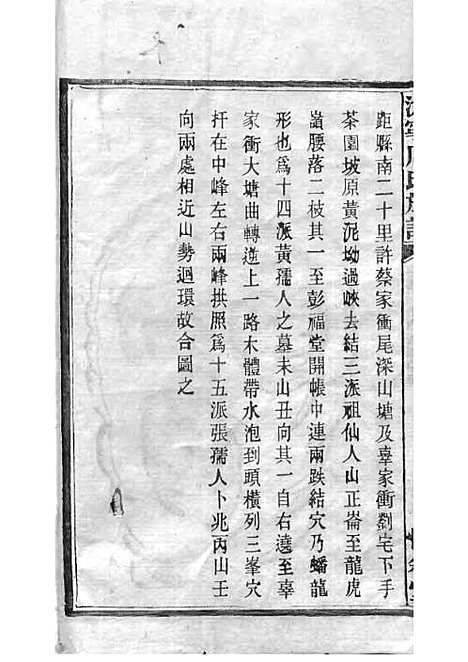 距縣南二十里許蔡家衝尾深山塘及辜家衝劉宅下手
茶園坡原黃泥坳過峽去結三派祖仙人山正崙至龍虎
嶺腰落二枝其一至彭福堂開帳中連兩跌結穴乃蟠龍
形也爲十四派黃孺人之墓未山丑向其一自右邊至辜
家衝大塘曲轉逆上一路木體帶水泡到頭橫列三峯穴
扦在中峰左右兩峰拱照爲十五派張孺人卜兆丙山壬
向兩處相近山勢迴環故合圖之
氏族譜